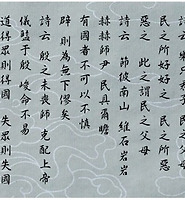 民之所好好之 民之所惡
惡之 此之謂民之父母
詩云 節彼南山 維石岩岩
赫赫師尹 民具爾瞻
有國者不可以不慎
辟則為天下僇矣
詩云 殷之未喪師 克配上帝
儀監于殷 峻命不易
道得眾則得國 失眾則失國